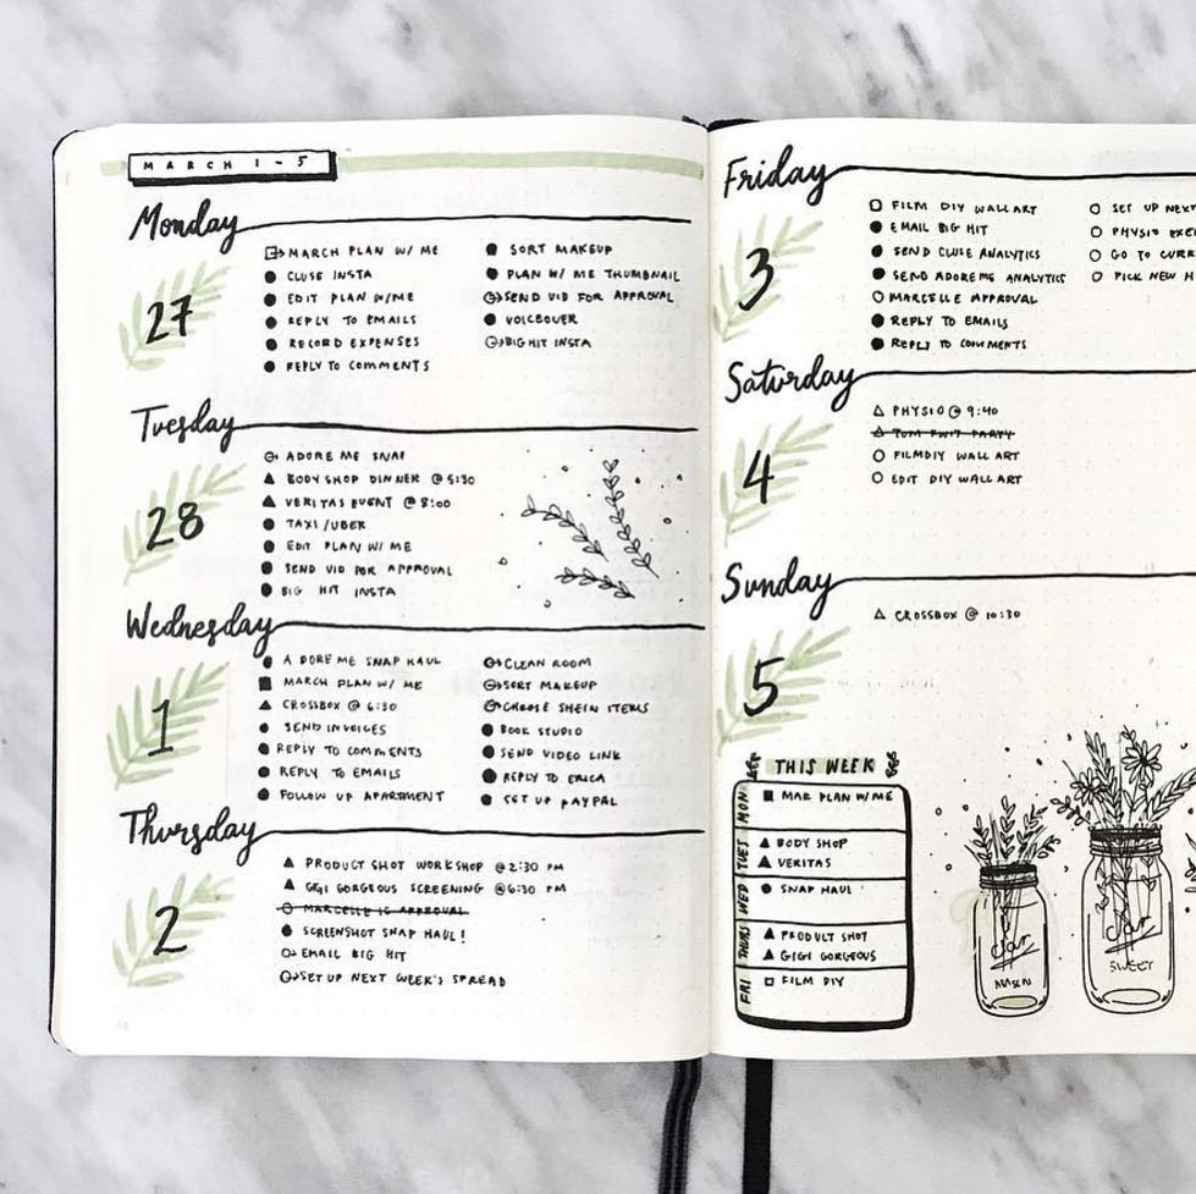 MARCH 1-5
Monday
27
MARCH PLAN W/ ME
CLOSE INSTA
EDIT PLAN W/ME
REPLY TO EMAILS
RECORD EXPENSES
REPLY TO COMMENTS
SORT MAKEUP
PLAN W/ ME THUMBNAIL
SEND VID FOR APPROVAL
VOICEOVER
BIG HIT INSTA
Tuesday
28
ADORE ME SNAP
BODY SHOP DINNER @ 5:30
VERITAS EVENT @ 8:00
TAXI/UBER
EDIT PLAN W/ ME
SEND VID FOR APPROVAL
BIG HIT INSTA
Wednesday
1
ADORE ME SNAP HAUL
MARCH PLAN W/ ME
CROSSBOX @ 6:30
SEND INVOICES
REPLY TO COMMENTS
REPLY TO EMAILS
FOLLOW UP APARTMENT
CLEAN ROOM
SORT MAKEUP
CHOOSE SHEIN ITEMS
BOOK STUDIO
SEND VIDEO LINK
REPLY TO ERICA
SET UP PAYPAL
Thursday
2
PRODUCT SHOT WORKSHOP @2:30 PM
GIGI GORGEOUS SCREENING @6:30 PM
MARCELLE IG APPROVAL
SCREENSHOT SNAP HAUL!
EMAIL BIG HIT
SET UP NEXT WEEK'S SPREAD
Friday
3
FILM DIY WALL ART
EMAIL BIG HIT
SEND CLUSE ANALYTICS
SEND ADORE ME ANALYTICS
MARCELLE APPROVAL
REPLY TO EMAILS
REPLY TO COMMENTS
SET UP NEXT
PHYSIO EXE
GO TO CURR
PICK NEW H
Saturday
4
PHYSIO @ 9:40
PARTY
FILM DIY WALL ART
EDIT DIY WALL ART
Sunday
5
CROSSBOX @ 10:30
THIS WEEK
MON
MAR PLAN W/ME
TUES
BODY SHOP
VERITAS
WED
SNAP HAUL
THURS
PRODUCT SHOT
GIGI GORGEOUS
FRI
FILM DIY
Jar
MASON
Jar
SWEET